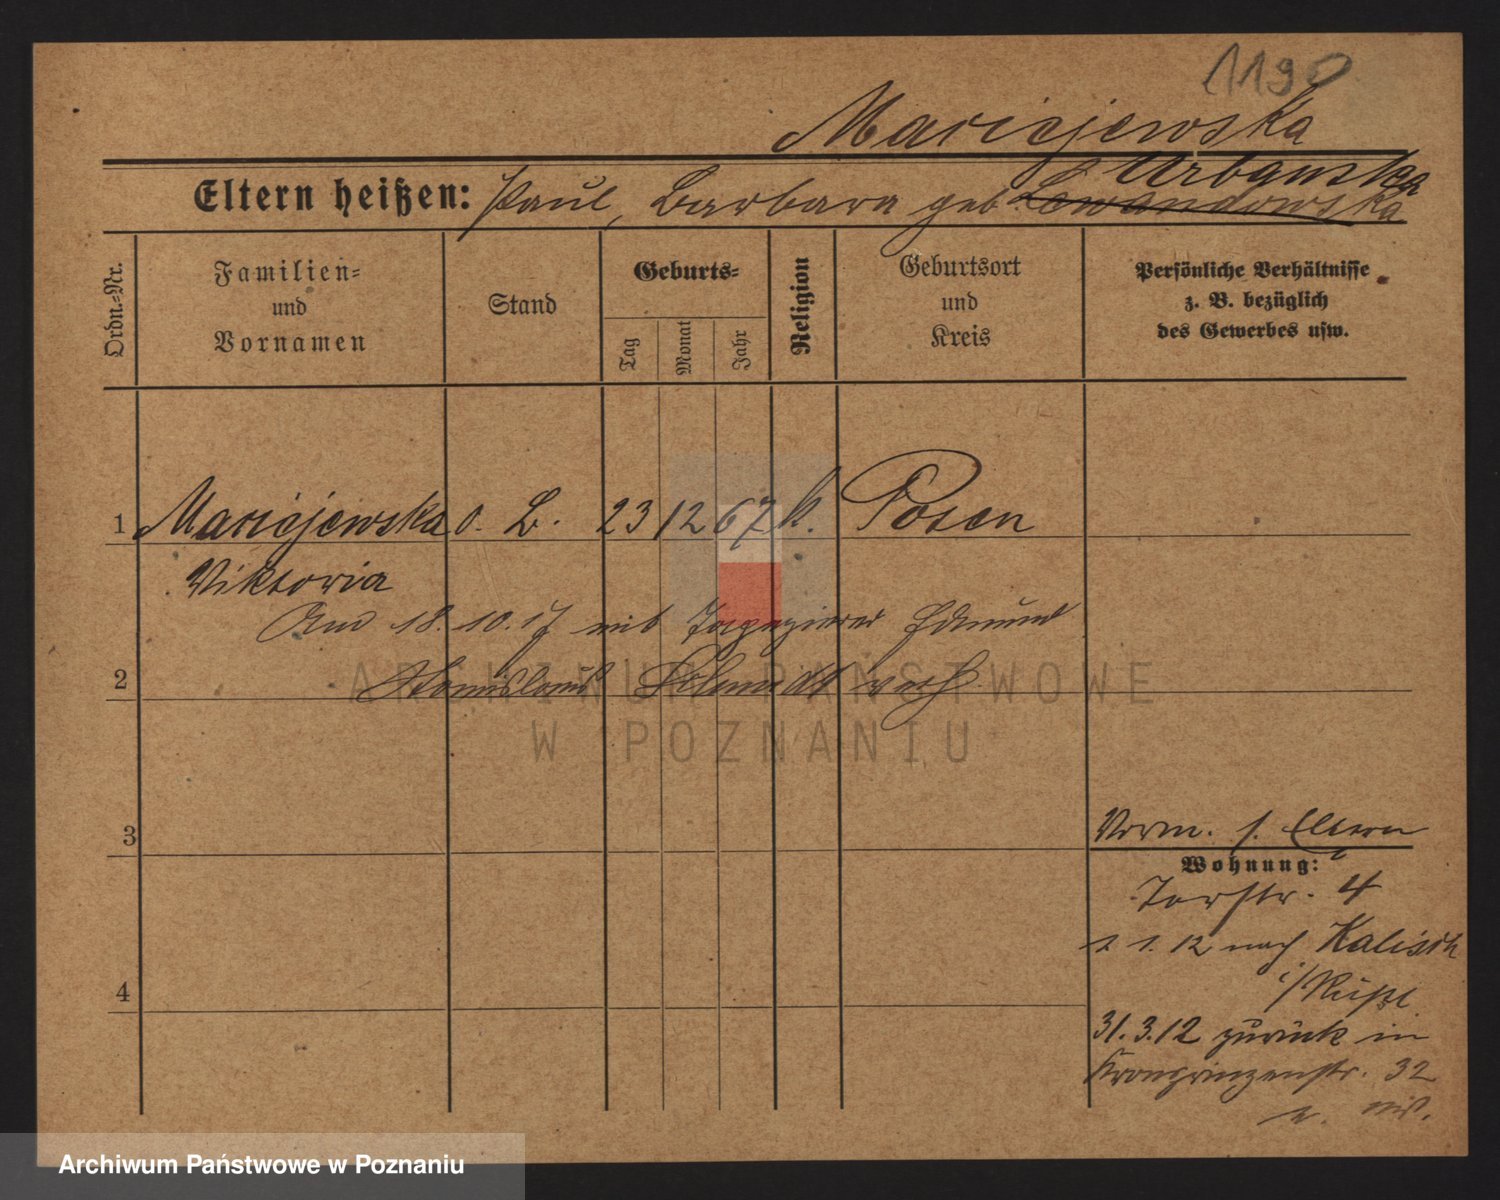 1190
Maciejewska
Urbanska
Eltern heißen: Paul, Barbara geb. Lewandowska
Ordn.-Nr.
Familien-
und
Vornamen
Stand
Geburts-
Tag
Monat
Jahr
Religion
Geburtsort
und
Kreis
Persönliche Verhältnisse
z. B. bezüglich
des Gewerbes usw.
1 Maciejewska o. B. 23 12 67 k. Posen
Viktoria
Am 18.10.17 mit Tapezierer Edmund
2 Stanislaus Schmidt verh.
ARCHIWUM PAŃSTWOWE
W POZNANIU
3
Vorm. s. Eltern
Wohnung:
Torstr. 4
1. 12 nach Kalisch
i/Rußl
4
31.3.12 zurück in
Kronprinzenstr. 32
Archiwum Państwowe w Poznaniu